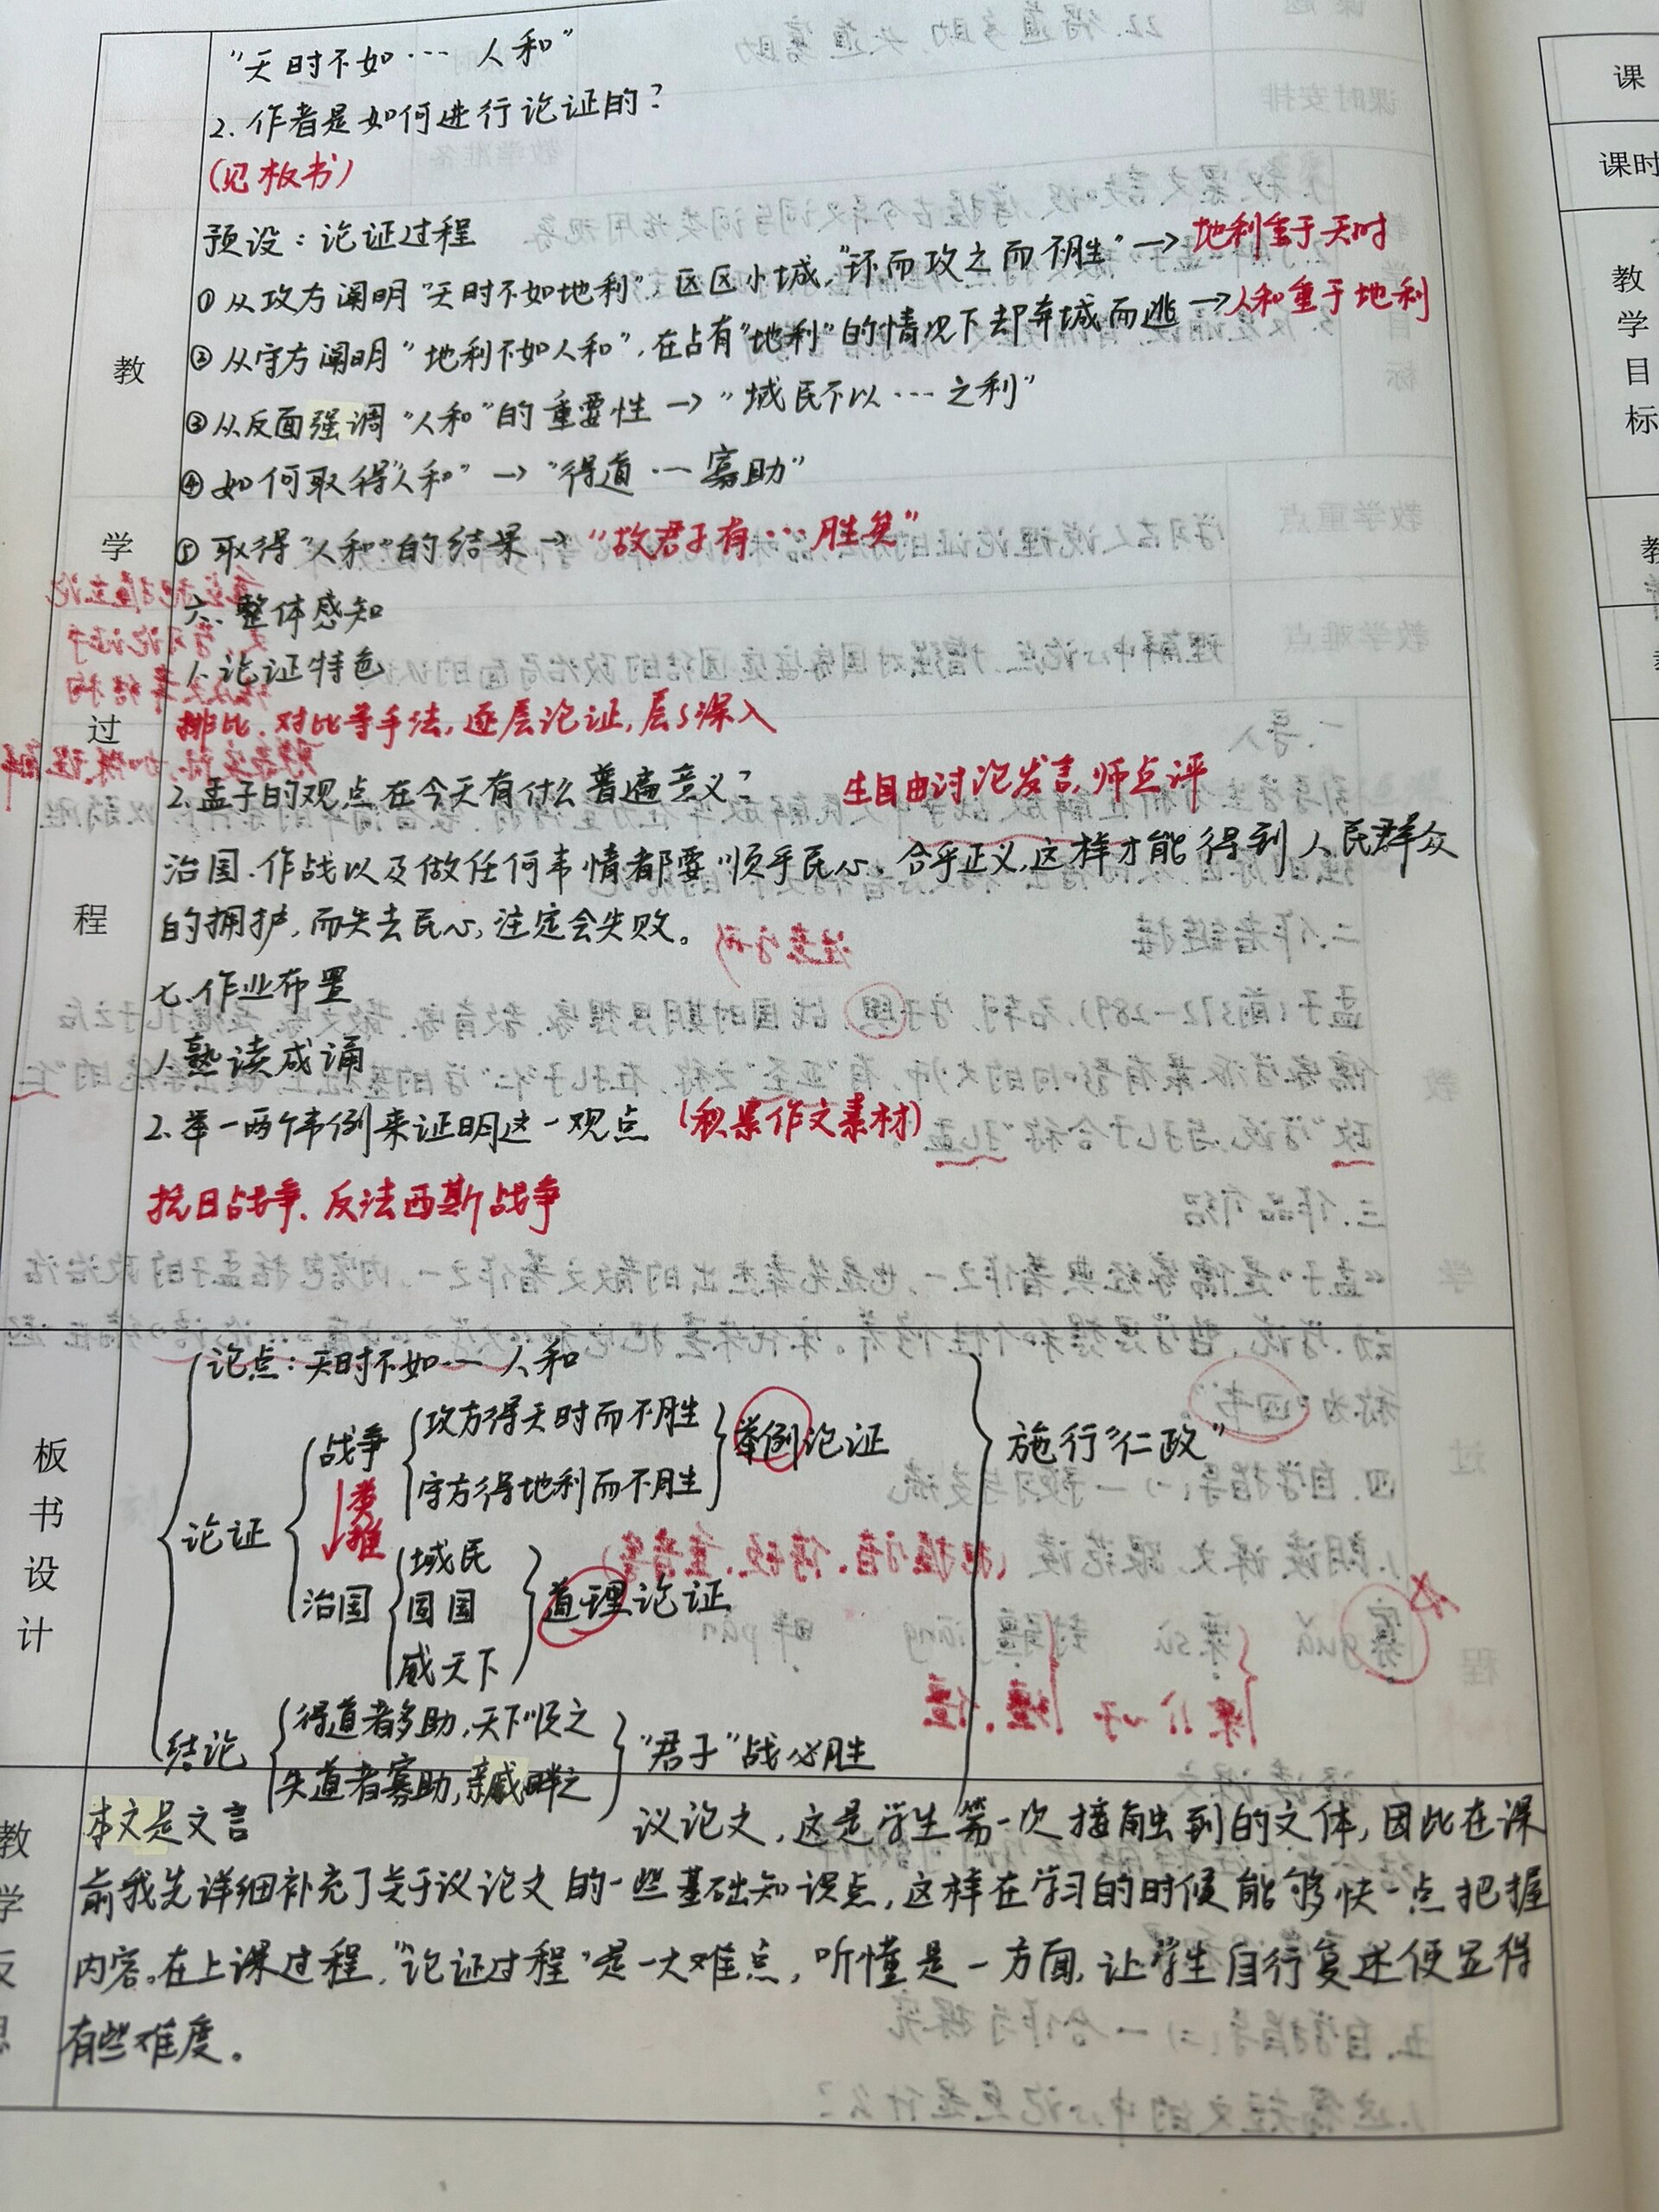 "天时不如… 人和"
2.作者是如何进行论证的？
(见板书)
预设：论证过程
①从攻方阐明"天时不如地利"，区区小城，"环而攻之而不胜"→地利重于天时
②从守方阐明"地利不如人和"，在占有"地利"的情况下却弃城而逃→人和重于地利
③从反面强调"人和"的重要性→"域民不以…之利"
④如何取得"人和"→"得道…寡助"
⑤取得"人和"的结果→"故君子有…胜矣"
六、整体感知
1.论证特色
排比、对比等手法，逐层论证，层层深入
2.孟子的观点在今天有什么普遍意义？ 生自由讨论发言，师点评
治国、作战以及做任何事情都要顺乎民心、合乎正义，这样才能得到人民群众
的拥护，而失去民心，注定会失败。
七、作业布置
1.熟读成诵
2.举一两个事例来证明这一观点 (积累作文素材)
抗日战争、反法西斯战争
教
学
过
程
板
书
设
计
论点：天时不如… 人和
论证
战争
攻方得天时而不胜
守方得地利而不胜
举例论证
类推
治国
域民
固国
威天下
道理论证
结论
得道者多助，天下顺之
失道者寡助，亲戚畔之
"君子"战必胜
施行"仁政"
教
学
反
思
本文是文言 议论文，这是学生第一次接触到的文体，因此在课
前我先详细补充了关于议论文的一些基础知识点，这样在学习的时候能够快一点把握
内容。在上课过程，"论证过程"是一大难点，听懂是一方面，让学生自行复述便显得
有些难度。
课
课时
教
学
目
标